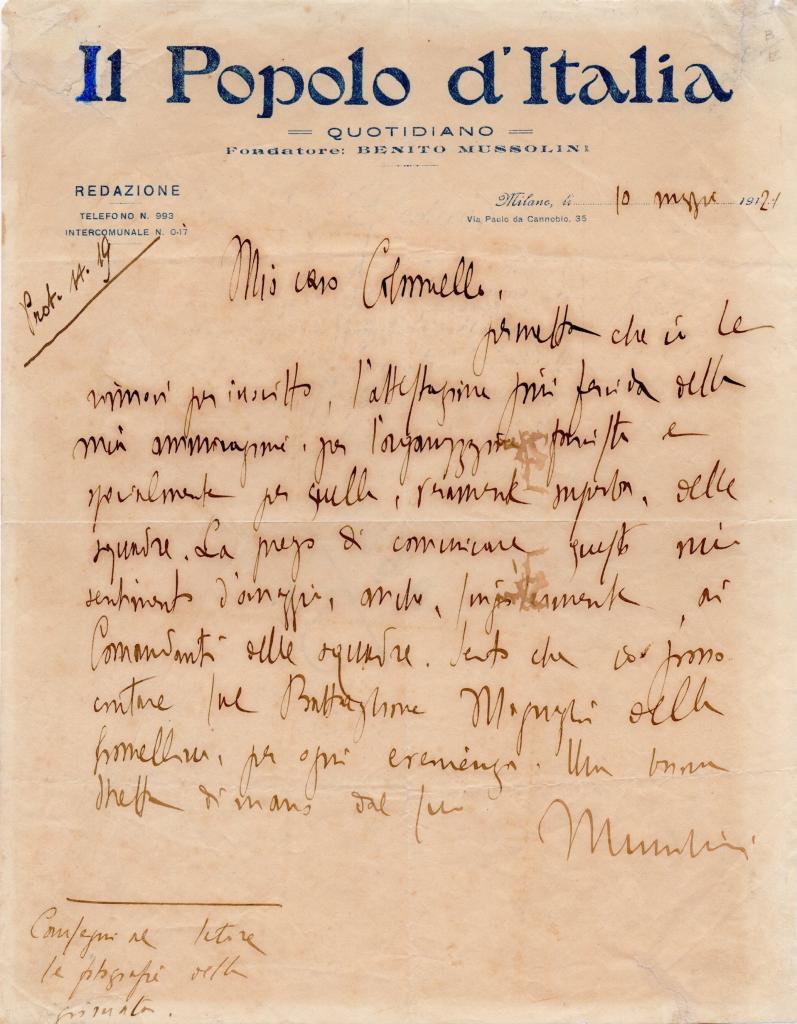 Il Popolo d'Italia
QUOTIDIANO
Fondatore: BENITO MUSSOLINI
REDAZIONE
TELEFONO N. 993
INTERCOMUNALE N. O-17
Milano, li 10 maggio 1921
Via Paolo da Cannobio, 35
Prot. N. 19
Mio caro Colonnello,
permetta che io Le
rinnovi per iscritto, l'attestazione più fervida della
mia ammirazione, per l'organizzazione fascista e
specialmente per quella, veramente superba, delle
squadre. La prego di comunicare questo mio
sentimento d'omaggio, anche, singolarmente, ai
Comandanti delle squadre. Sento che io posso
contare sul Battaglione Magnaghi della
Lomellina, per ogni evenienza. Una buona
stretta di mano dal suo
Mussolini
Consegni al latore
le fotografie della
giornata.